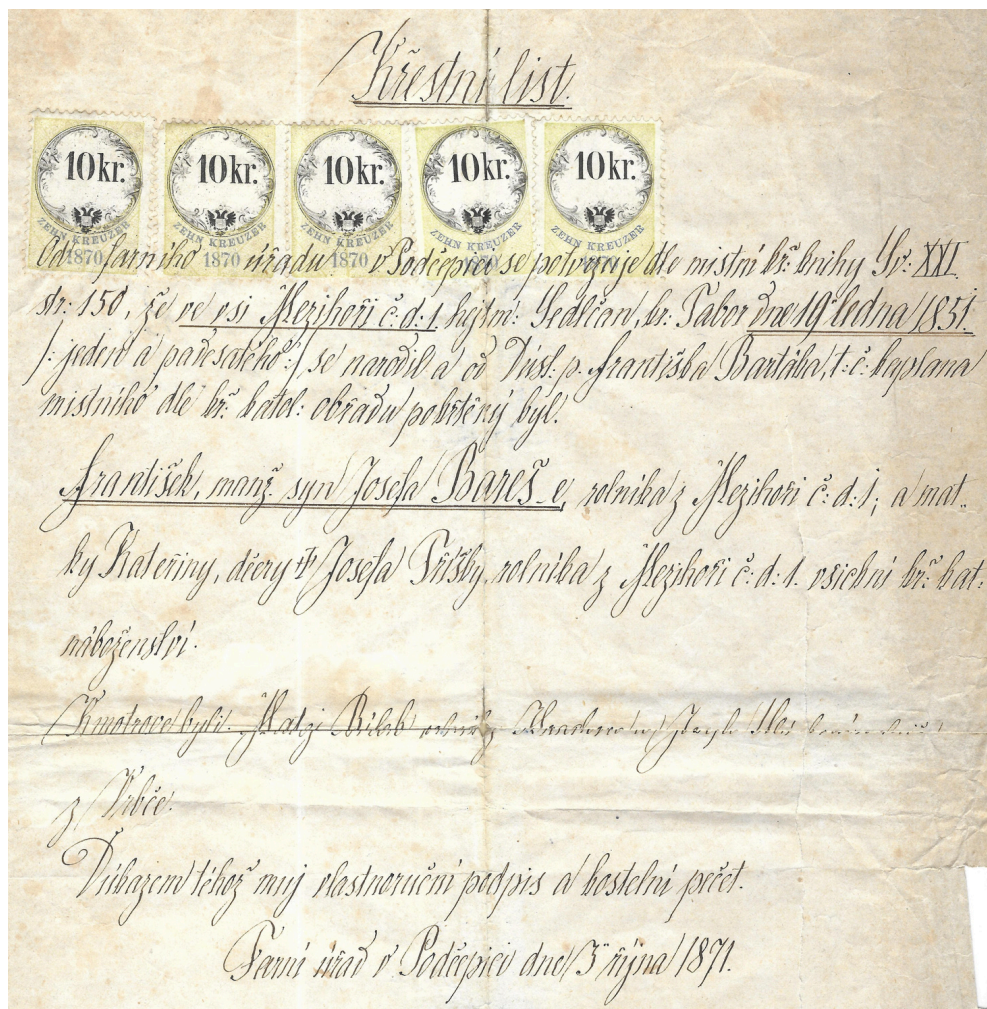 Křestní list.
10 kr. 10 kr. 10 kr. 10 kr. 10 kr.
ZEHN KREUZER ZEHN KREUZER ZEHN KREUZER ZEHN KREUZER ZEHN KREUZER
1870 1870 1870 1870 1870
Od farního úřadu v Podčepici se potvrzuje dle místní kř: knihy Sv: XXI.
str: 150, že ve vsi Mezihoří č: d: 1 hejtm: Sedlčan, kr: Tábor dne 19º ledna 1851.
/: jeden a padesátého :/ se narodil a od Důst: p. Františka Bartáka, t: č: kaplana
místního dle kř: katol: obřadu pokřtěný byl.
František, manž. syn Josefa Bareš-e, rolníka z Mezihoří č: d: 1; a mat-
ky Kateřiny, dcery Josefa Tříšky, rolníka z Mezihoří č: d: 1. všichni kř: kat:
náboženství.
Kmotrové byli: Matěj Bílek rolník z Josef
z Vrbče.
Důkazem téhož můj vlastnoruční podpis a kostelní pečet.
Farní úřad v Podčepici dne 3º října 1871.